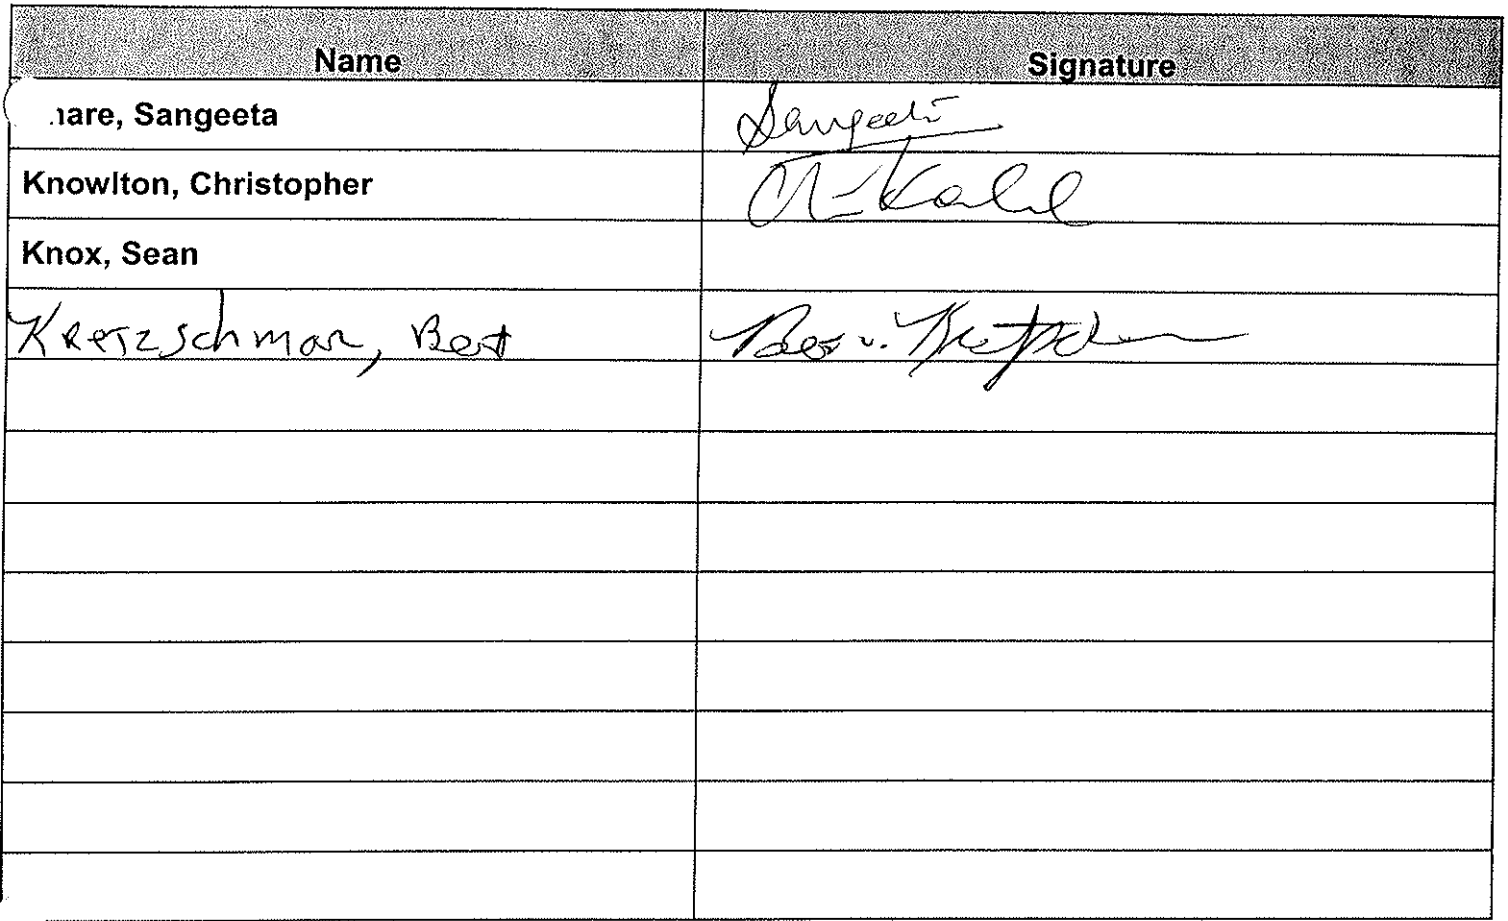 Name Signature
Sangeeta
Knowlton, Christopher
Knox, Sean
Kretzschmar, Bert